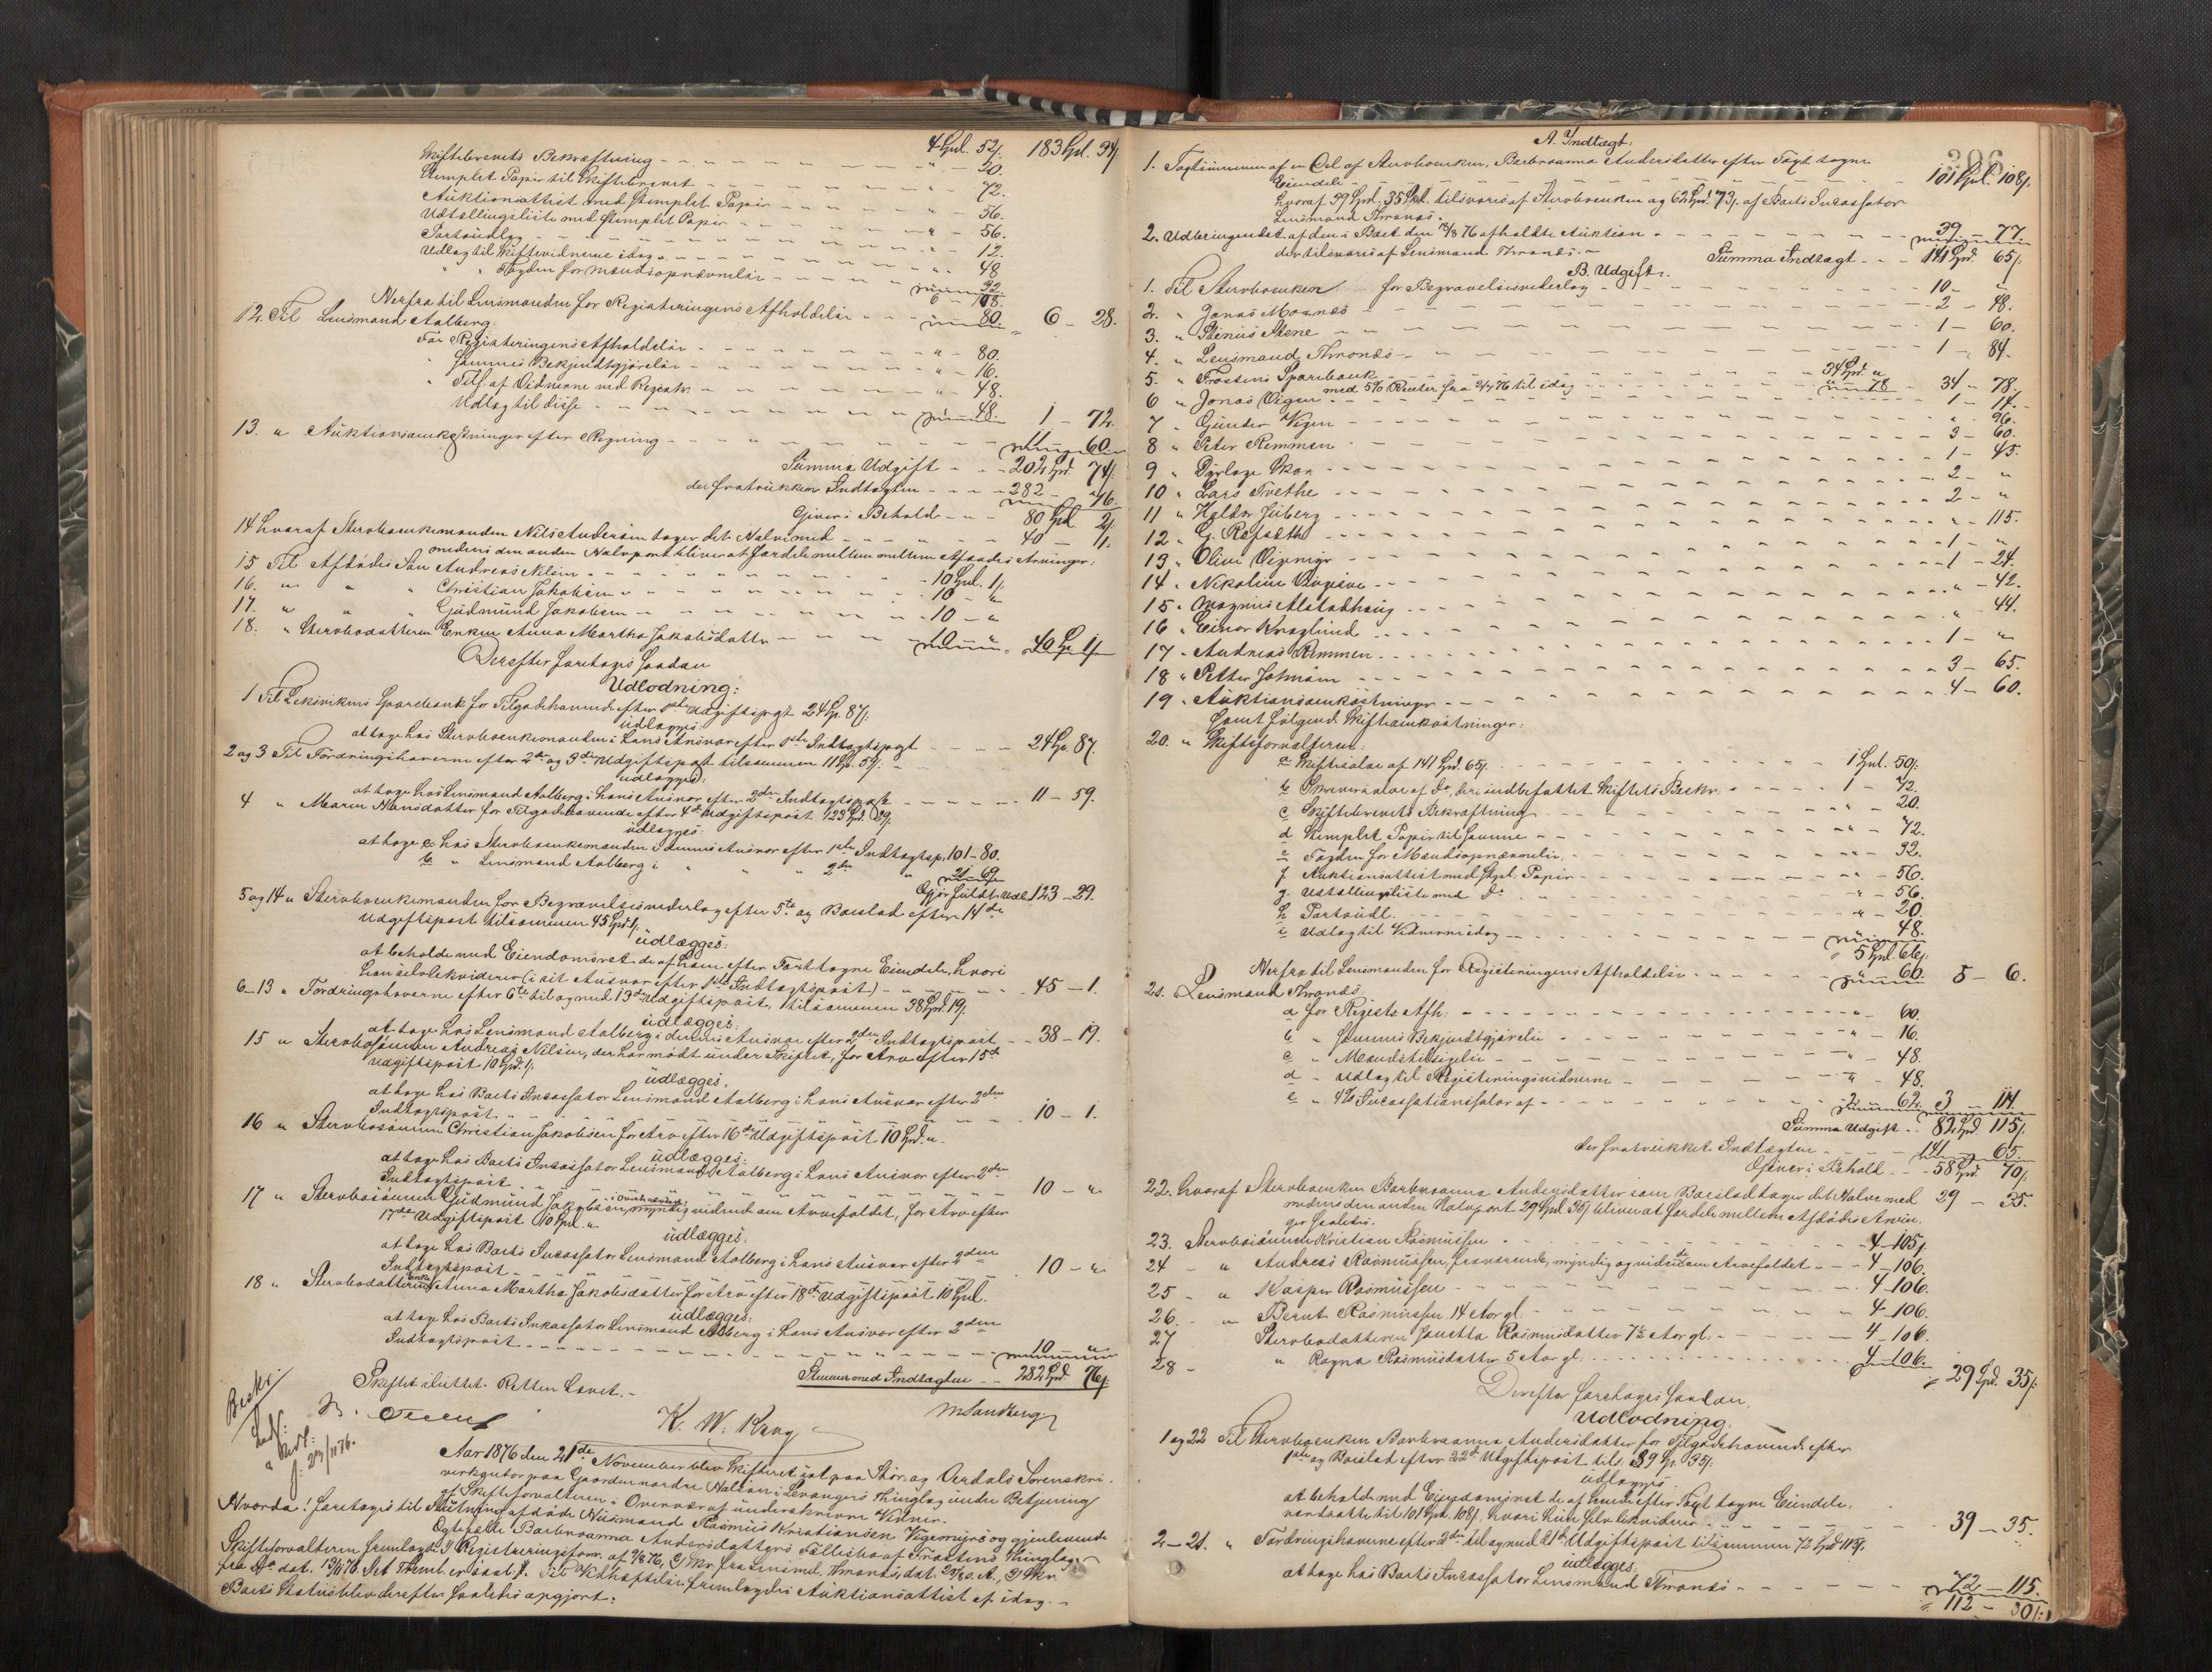 Skiftebrevets Bekræftning - - - - - - 4 Spd. 52/. 183 Spd. 94/.
Stemplet Papir til Skiftebrevet - - - - " - 20.
Auktionsattist med stemplet Papir - - - " - 72.
Udtellingsliste med stemplet Papir - - - " - 56.
Portoudlæg - - - - " - 56.
Udlæg til Skiftevidnerne idag - - - - " - 12.
" " Fogden for Mændsopnævnelse - - - " - 48
32
6 - 108.
Herfra til Lensmanden for Registeringens Afholdelse - - - 80. 6 - 28.
12. Til Lensmand Aalberg:
For Registeringens Afholdelse - - - " - 80.
" Sammes Bekjendtgjørelse - - - " - 16.
" Tils. af Vidnerne ved Registr. - - - " - 48.
Udlæg til disse - - - " 48. 1 - 72.
13. " Auktionsomkostninger efter Regning - - - 11 - 60.
Summa Udgift - - - 202 Spd. 74/.
der fratrukken Indtægten - - - 282 - 76.
Giver i Behold - - - 80 Spd. 2/.
14 hvoraf Stervboenkemanden Nils Andersen tager det Halve med - - - 40 - 1/.
medens den anden Halvpart bliver at fordele mellem mellem Afdødes Arvinger:
15 Til Afdødes Søn Andreas Nilsen - - - 10 Spd. 1/.
16. " " " Christian Jakobsen - - - 10 - "
17. " " " Gudmund Jakobsen - - - 10 - "
18. " Stervbodatteren Enken Anna Martha Jakobsdatter - - - 10 - " 40 Sp. 1/.
Derefter foretages saadan
Udlodning:
1 Til Leksvikens Sparebank for Tilgodehavende efter 1ste Udgiftspost 24 Sp. 87/.
udlægges:
at tage hos Stervboenkemanden i hans Ansvar efter 1ste Indtægtspost - - - 24 Sp. 87.
2 og 3 Til Fordringshaverne efter 2den og 3die Udgiftspost tilsammen 11 Sp. 59/.
udlægges:
at tage hos Lensmand Aalberg i hans Ansvar efter 2den Indtægtspost - - - 11 - 59.
4 " Maren Hansdatter for Tilgodehavende efter 4de Udgiftspost 123 Spd. 29/.
udlægges:
at tage a hos Stervboenkemanden i sammes Ansvar efter 1ste Indtægtsp. 101 - 80.
b " Lensmand Aalberg i " " " 2den " 21 - 69
Gjør fuldt Udl. 123 - 29.
5 og 14 " Stervboenkemanden for Begravelsesvederlag efter 5te og Boeslod efter 14de
Udgiftspost tilsammen 45 Spd. 1/.
udlægges:
at beholde med Eiendomsret de af ham efter Taxt tagne Eiendele, hvori
han selv likviderer (i sit Ansvar efter 1ste Indtægtspost) - - - 45 - 1.
6-13 " Fordringshaverne efter 6te til og med 13de Udgiftspost, tilsammen 38 Spd. 19/.
udlægges:
at tage hos Lensmand Aalberg i dennes Ansvar efter 2den Indtægtspost - - 38 - 19.
15 " Stervbosønnen Andreas Nilsen, der har mødt under Skiftet, for Arv efter 15de
Udgiftspost 10 Spd. 1/.
udlægges,
at tage hos Boets Incassator Lensmand Aalberg i hans Ansvar efter 2den
Indtægtspost - - - 10 - 1.
16 " Stervbosønnen Christian Jakobsen for Arv efter 16de Udgiftspost 10 Spd. "
udlægges:
at tage hos Boets Incassator Lensmand Aalberg i hans Ansvar efter 2den
Indtægtspost - - - 10 - "
17 " Stervbosønnen Gudmund Jakobsen, myndig vidende om Arvefaldet, for Arv efter
17de Udgiftspost 10 Spd. "
udlægges:
at tage hos Boets Incassator Lensmand Aalberg i hans Ansvar efter 2den
Indtægtspost - - - 10 - "
18 " Stervbodatteren Enke Anna Martha Jakobsdatter for Arv efter 18de Udgiftspost 10 Spd.
udlægges:
at tage hos Boets Inkassator Lensmand Aalberg i hans Ansvar efter 2den
Indtægtspost - - - 10 "
Stemmer med Indtægten - - 282 Spd. 76/.
Skiftet sluttet. Retten hævet. -
K. W. Krog
M Sandberg
Aar 1876 den 21de November blev Skifteret sat paa Stør og Værdals Sorenskri-
verkontor paa Gaarden nordre Halsan i Levangers Thinglag under Betjening
af Skifteforvalteren i Overvær af underskrevne Vidner.
Hvorda: foretages til Slutning afdøde Husmand Rasmus Kristiansen Vigemyrs og gjenlevende
Ægtefælle Barbroanna Andersdatters Fællesbo af Frostens Thinglag.
Skifteforvalteren fremlagde 1) Registreringsforr. af 7/8 76, 2) Skr. fra Lensmd. Hmonæs, dat. 24/8 s. A., 3) Skr.
fra do dat. 13/11 76. Det Freml. er saal. /. Til Vedhæftelse fremlagdes Auktionsattist af idag. -
Boets Status blev derefter saaledes opgjort:
A. Indtægt.
1. Taxtsummen af en Del af Stervboenken, Barbroanna Andersdatter efter Taxt tagne
Eiendele - - - 101 Spd. 108/.
hvoraf 39 Spd. 35 Sk. tilsvares af Stervboenken og 62 Spd. 73/. af Boets Incassator
Lensmand Hmonæs.
2. Udbringendet af den i Boet den 12/8 76 afholdte Auktion - - - 39 - 77.
der tilsvares af Lensmand Hmonæs. - Summa Indtægt - - - 141 Spd. 65/.
B. Udgift.
1. Til Stervboenken for Begravelsesvederlag - - - 10 - "
2. " Jonas Moanæs - - - 2 - 48.
3. " Stenius Stene - - - 1 - 60.
4. " Lensmand Hmonæs - - - 1 - 84.
5. " Frostens Sparebank - - - 34 Spd. "
med 5% Renter fra 2/7 76 til idag - - - " 78 34 - 78.
6 " Jonas Vigen - - - 1 - 14.
7 " Gunder Vigen - - - " 96.
8 " Peter Remmen - - - 3 - 60.
9 " Dyrlæge Skaa - - - 1 - 45.
10 " Lars Trethe - - - 2 - "
11 " Haldor Juberg - - - 2 - "
12 " G. Rofsæth - - - " - 115.
13 " Oline Vigemyr - - - 1 - "
14 " Nikoline Vingsine - - - 1 - 24.
15 " Magnus Alstadhaug - - - " - 42.
16 " Einar Kroglund - - - " 44.
17 " Andreas Remmen - - - 1 - "
18 " Petter Johnsen - - - 3 - 65.
19 " Auktionsomkostninger - - - 4 - 60.
Samt følgende Skifteomkostninger:
20. " Skifteforvalteren:
a Skiftesalær af 141 Spd. 65/. - - - 1 Spd. 50/.
b Skriversalær af do, deri indbefattet Skiftets Beskr. - - - 1 - 72.
c Skiftebrevets Bekræftning - - - " - 20.
d Stemplet Papir til samme - - - " - 72.
e Fogden for Mændsopnævnelse - - - " - 32.
f Auktionsattist med stpl. Papir - - - " - 56.
g. Udtellingsliste med do - - - " - 56.
h Portoudl. - - - " - 20.
i Udlæg til Vidnerne idag - - - 48.
5 Spd. 66/.
Herfra til Lensmanden for Registeringens Afholdelse - - - 60. 5 - 6.
21. Lensmand Hmonæs
a for Registr. Afh. - - - " - 60.
b " Sammes Bekjendtgjørelse - - - " - 16.
c " Mændstilsigelse - - - " - 48.
d " Udlæg til Registeringsvidnerne - - - " - 48.
e " 4% Incassationssalær af - - - 2 - 62. 3 - 114.
Summa Udgift - - 82 Spd. 115/.
der fratrukket Indtægten - - - 141 65.
Giver i Behold - - - 58 Spd. 70/.
22. hvoraf Stervboenken Barbroanna Andersdatter som Boeslod tager det Halve med 29 - 35.
medens den anden Halvpart 29 Spd. 35/. bliver at fordele mellem Afdødes Arvin-
ger saaledes:
23. Stervbosønnen Kristian Rasmussen - - - 4 - 105/.
24 - " Andreas Rasmussen, fraværende, myndig og vidende om Arvefaldet - - - 4 - 106.
25 - " Kasper Rasmussen - - - 4 - 106.
26. - " Bernt Rasmussen 14 Aar gl. - - - 4 - 106.
27 Stervbodatteren Janetta Rasmusdatter 7½ Aar gl. - - - 4 - 106.
28 - " Ragna Rasmusdatter 5 Aar gl. - - - 4 - 106. 29 Spd. 35/.
Derefter foretages saadan
Udlodning.
1 og 22 Til Stervboenken Barbroanna Andersdatter for Tilgodehavende efter
1ste og Boeslod efter 22de Udgiftspost tils. 39 Sp. 35/.
udlægges
at beholde med Eiendomsret de af hende efter Taxt tagne Eiendele,
værdsatte til 101 Spd. 108/. hvori hun selv likviderer - - - 39 - 35.
2-21. " Fordringshaverne efter 2den til og med 21de Udgiftspost tilsammen 72 Spd. 115/.
udlægges,
at tage hos Boets Incassator Lensmand Hmonæs - - - 72 - 115.
112 - 30/.